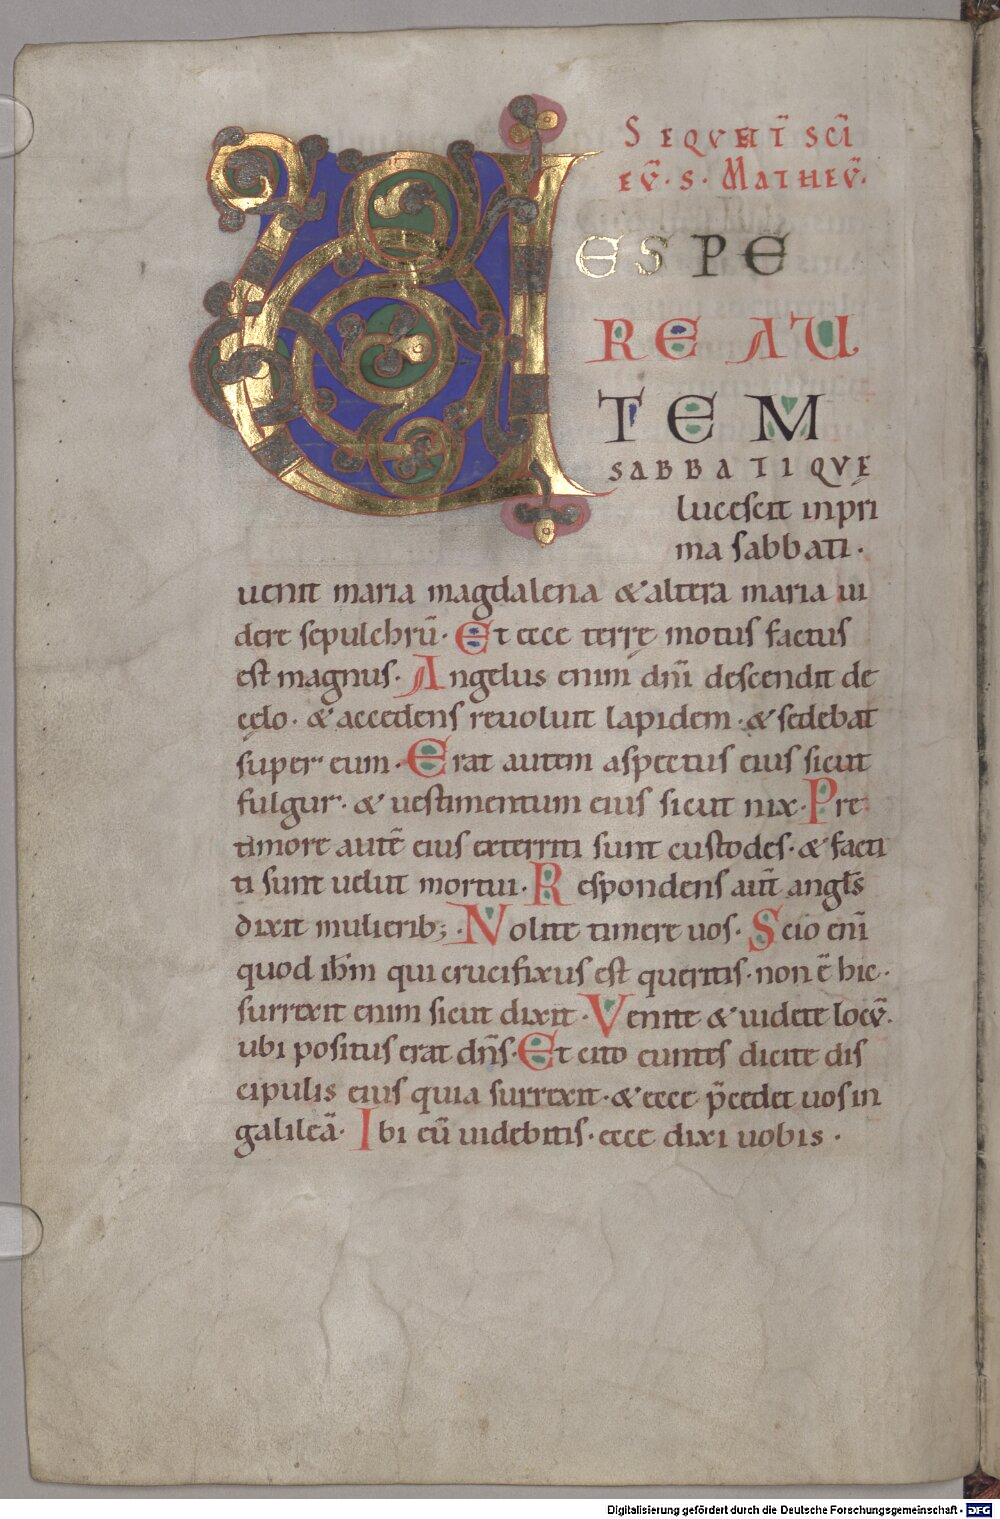 SEQVENT̄ SC̄I
EṼ · S · MATHEṼ.
VESPE
RE AU
TEM
SABBATI QVE
lucescit inpri
ma sabbati ·
uenit maria magdalena & altera maria ui
dere sepulchrū · Et ecce terrę motus factus
est magnus · Angelus enim dn̄i descendit de
cęlo · & accedens reuoluit lapidem · & sedebat
super eum · Erat autem aspectus eius sicut
fulgur · & uestimentum eius sicut nix · Pre
timore autē eius exterriti sunt custodes · & facti
ti sunt uelut mortui · Respondens aut̄ angl̄s
dixit mulierib; · Nolite timere uos · Scio eni̅
quod ih̄m qui crucifixus est queritis · non ē hic ·
surrexit enim sicut dixit · Venite & uidete locṽ.
ubi positus erat dn̄s · Et cito euntes dicite dis
cipulis eius quia surrexit · & ecce p̄cedet uos in
galileā · Ibi eū uidebitis · ecce dixi uobis ·
Digitalisierung gefördert durch die Deutsche Forschungsgemeinschaft - DFG